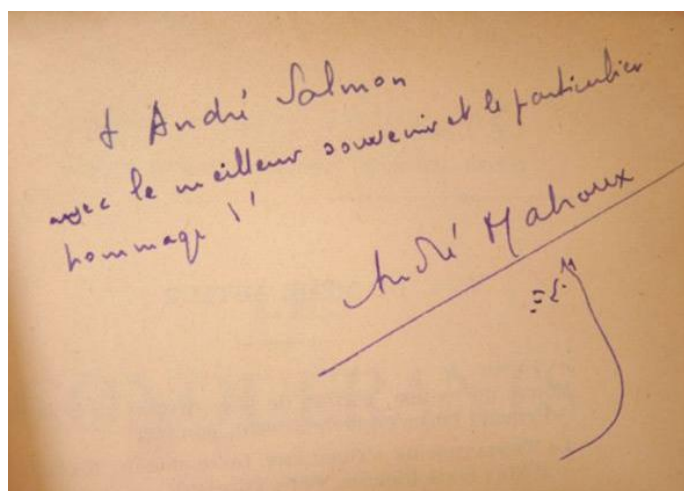 à André Salmon
avec le meilleur souvenir et le particulier
hommage d'
André Malraux